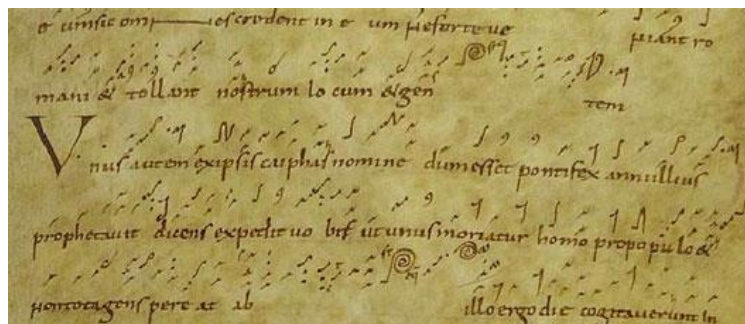 e umsic omn es credent in e um ne forte ve niant ro
mani & tollant nostrum lo cum & gen tem
Vnus autem exipsis caiphas nomine dum esset pontifex anni illius
prophetavit dicens expedit vo bis ut unus moriatur homo pro populo &
non totagens pere at ab illo ergo die cogitaverunt in